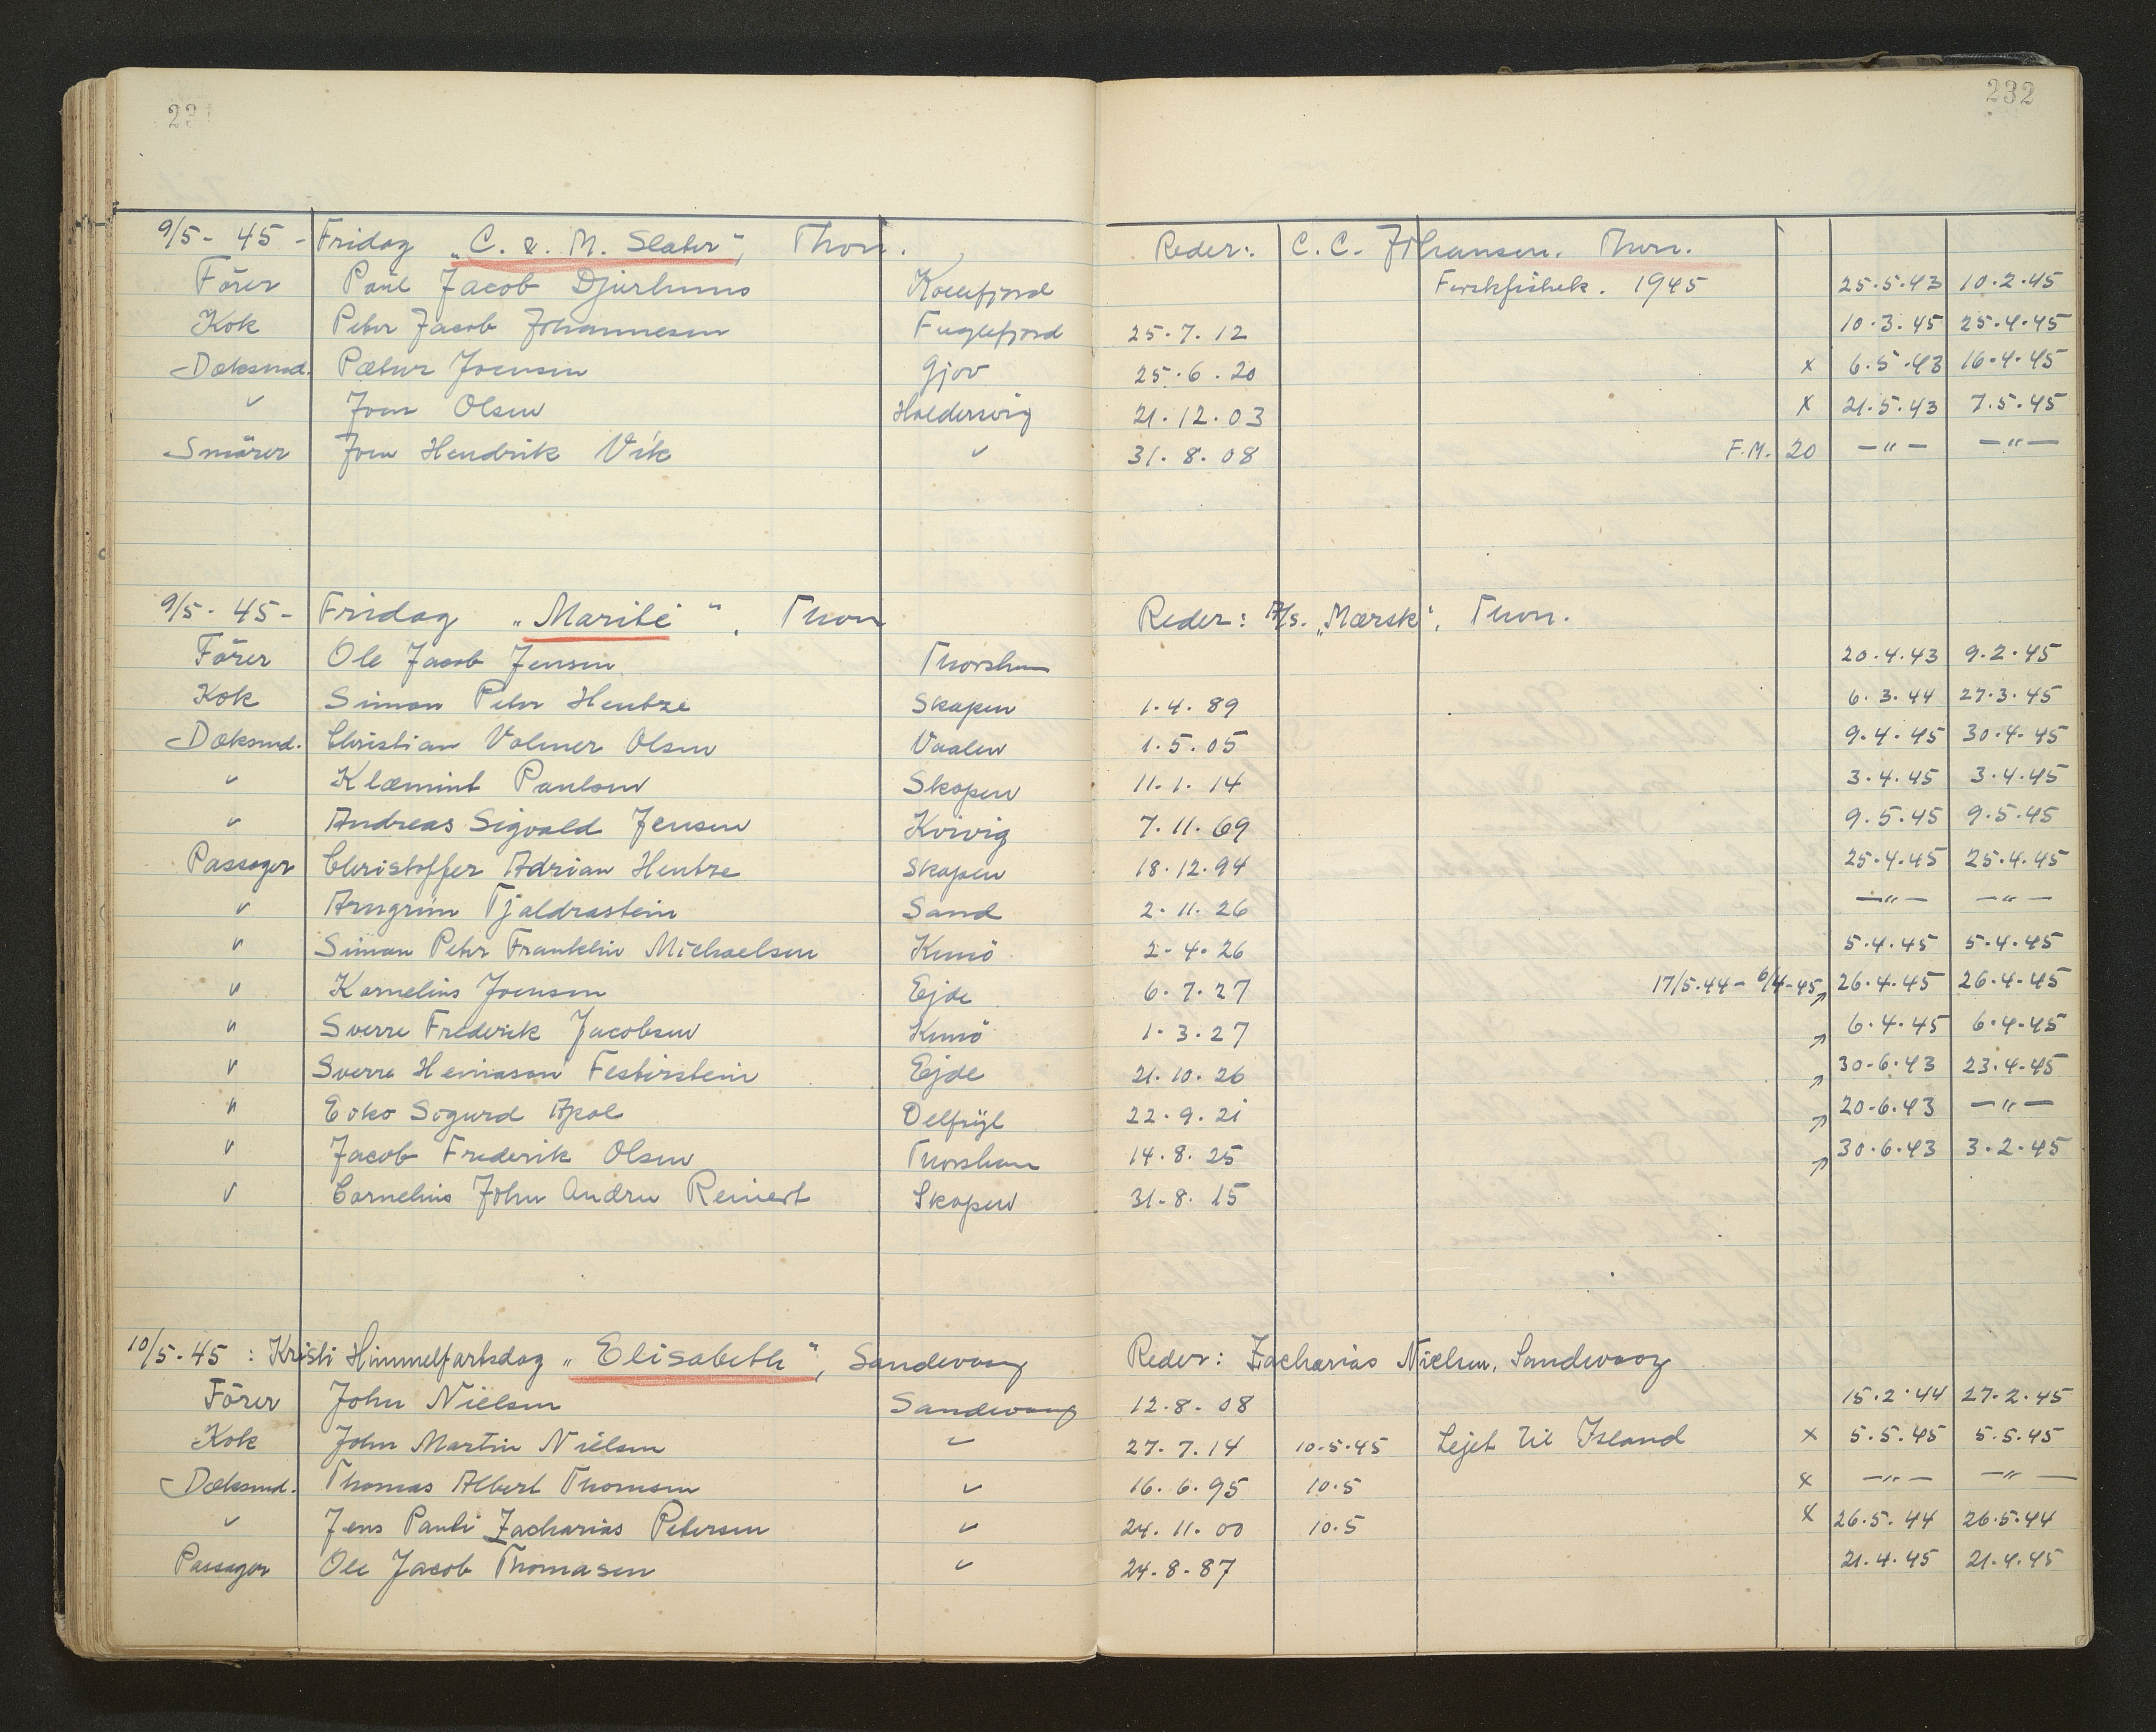 232
9/5 - 45 - Fridag „C. & M. Slater“, Thvn. Reder: C. C. Johansen. Thvn.
Förer Poul Jacob Djurhuus Kollefjord Ferskfiskek. 1945 25.5.43 10.2.45
Kok Peter Jacob Johannesen Fuglefjord 25.7.12 10.3.45 25.4.45
Dæksmd. Pætur Joensen Gjov 25.6.20 x 6.5.43 16.4.45
" Joen Olsen Haldersvig 21.12.03 x 21.5.43 7.5.45
Smörer Joen Hendrik Vik " 31.8.08 F.M. 20 —"— —"—
9/5 - 45 - Fridag „Marité“, Thvn Reder: A/s. „Mærsk“, Thvn.
Förer Ole Jacob Jensen Thorshvn 20.4.43 9.2.45
Kok Simon Peter Hentze Skopen 1.4.89 6.3.44 27.3.45
Dæksmd. Christian Volmer Olsen Vaalen 1.5.05 9.4.45 30.4.45
" Klæmint Poulsen Skopen 11.1.14 3.4.45 3.4.45
" Andreas Sigvald Jensen Kvivig 7.11.69 9.5.45 9.5.45
Passager Christoffer Adrian Hentze Skopen 18.12.94 25.4.45 25.4.45
" Arngrim Tjaldrastein Sand 2.11.26 —"— —"—
" Simon Peter Franklin Michaelsen Kunö 2.4.26 5.4.45 5.4.45
" Kornelius Joensen Ejde 6.7.27 17/5.44 - 6/4-45 26.4.45 26.4.45
" Sverre Frederik Jacobsen Kunö 1.3.27 6.4.45 6.4.45
" Sverre Heinason Festirstein Ejde 21.10.26 30.6.43 23.4.45
" Sogurd Apol 22.9.21 20.6.43 —"—
" Jacob Frederik Olsen Thorshvn 14.8.25 30.6.43 3.2.45
" Cornelius John Andru Reinert Skopen 31.8.15
10/5-45 : Kristi Himmelfartsdag „Elisabeth“, Sandevaag Reder: Zacharias Nielsen, Sandevaag
Förer John Nielsen Sandevaag 12.8.08 15.2.44 27.2.45
Kok John Martin Nielsen " 27.7.14 10.5.45 Lejet til Island x 5.5.45 5.5.45
Dæksmd. Thomas Albert Thomsen " 16.6.95 10.5 x —"— —"—
" Jens Pauli Zacharias Petersen " 24.11.00 10.5 x 26.5.44 26.5.44
Passager Ole Jacob Thomasen " 24.8.87 21.4.45 21.4.45